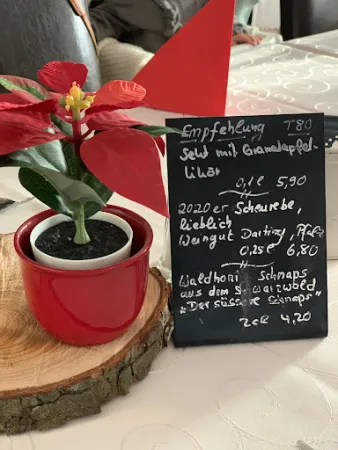 Empfehlung T80
Sekt mit Granatapfel-
likör
0,1l 5,90
2020er Scheurebe,
lieblich
Weingut Pfalz
0,25l 6,80
Waldhonig Schnaps
aus dem Schwarzwald
"Der süssere Schnaps"
2cl 4,20